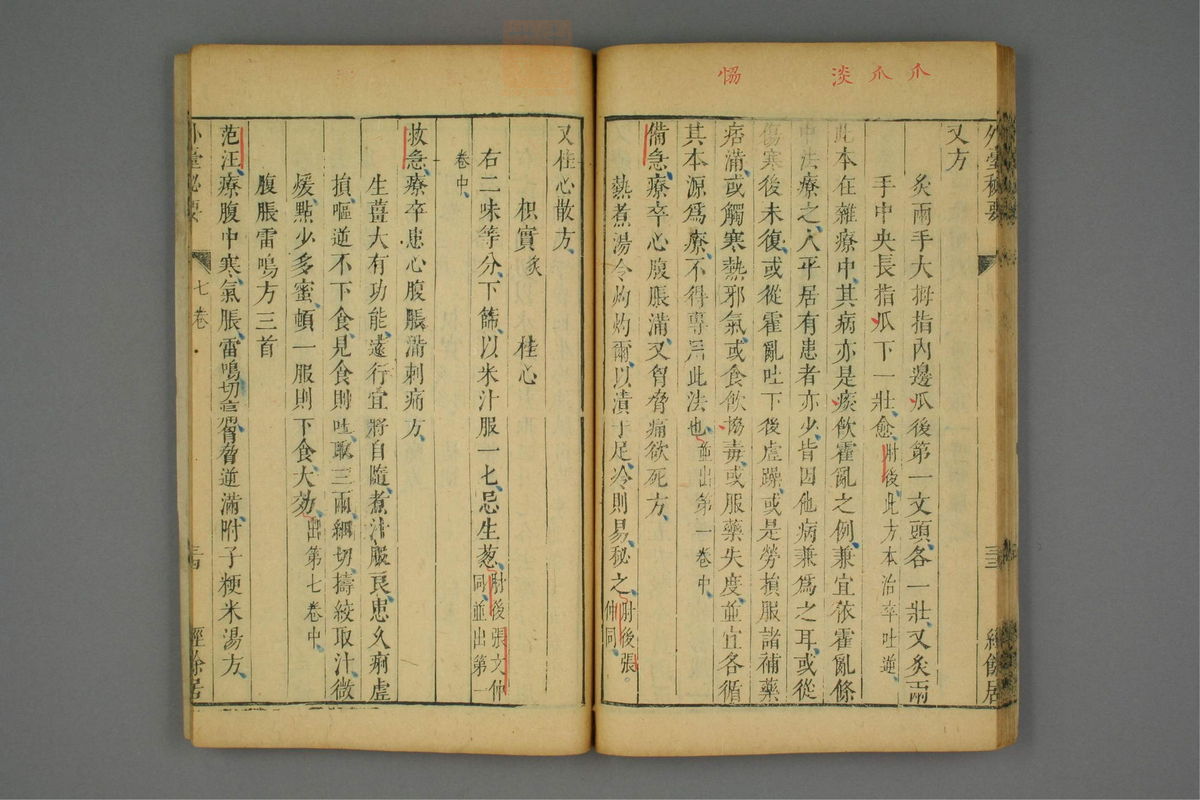 爪
爪
淡
愶
外臺秘要
三三
經餘居
又方
炙兩手大拇指內邊瓜後第一文頭各一壯又炙兩
手中央長指瓜下一壯愈肘後此方本治卒吐逆
此本在雜療中其病亦是痰飲霍亂之例兼宜依霍亂條
中法療之人平居有患者亦少皆因他病兼爲之耳或從
傷寒後未復或從霍亂吐下後虛躁或是勞損服諸補藥
痞滿或觸寒熱邪氣或食飲搗毒或服藥失度並宜各循
其本源爲療不得專呂此法也並出第一卷中
備急療卒心腹脹滿又胷脅痛欲死方
熱煮湯令灼灼爾以漬手足冷則易秘之肘後張
仲同
又桂心散方
枳實炙 桂心
右二味等分下篩以米汁服一七忌生葱肘後張文仲
同並出第一
卷中
救急療卒患心腹脹滿刺痛方
生薑大有功能遠行宜將自隨煮汁服良患久痢虛
損嘔逆不下食見食則吐取三兩細切擣絞取汁微
煖點少多蜜頓一服則下食大効出第七卷中
腹脹雷鳴方三首
范汪療腹中寒氣脹雷鳴切痛胷脅逆滿附子粳米湯方
外臺秘要
七卷
三四
經餘居